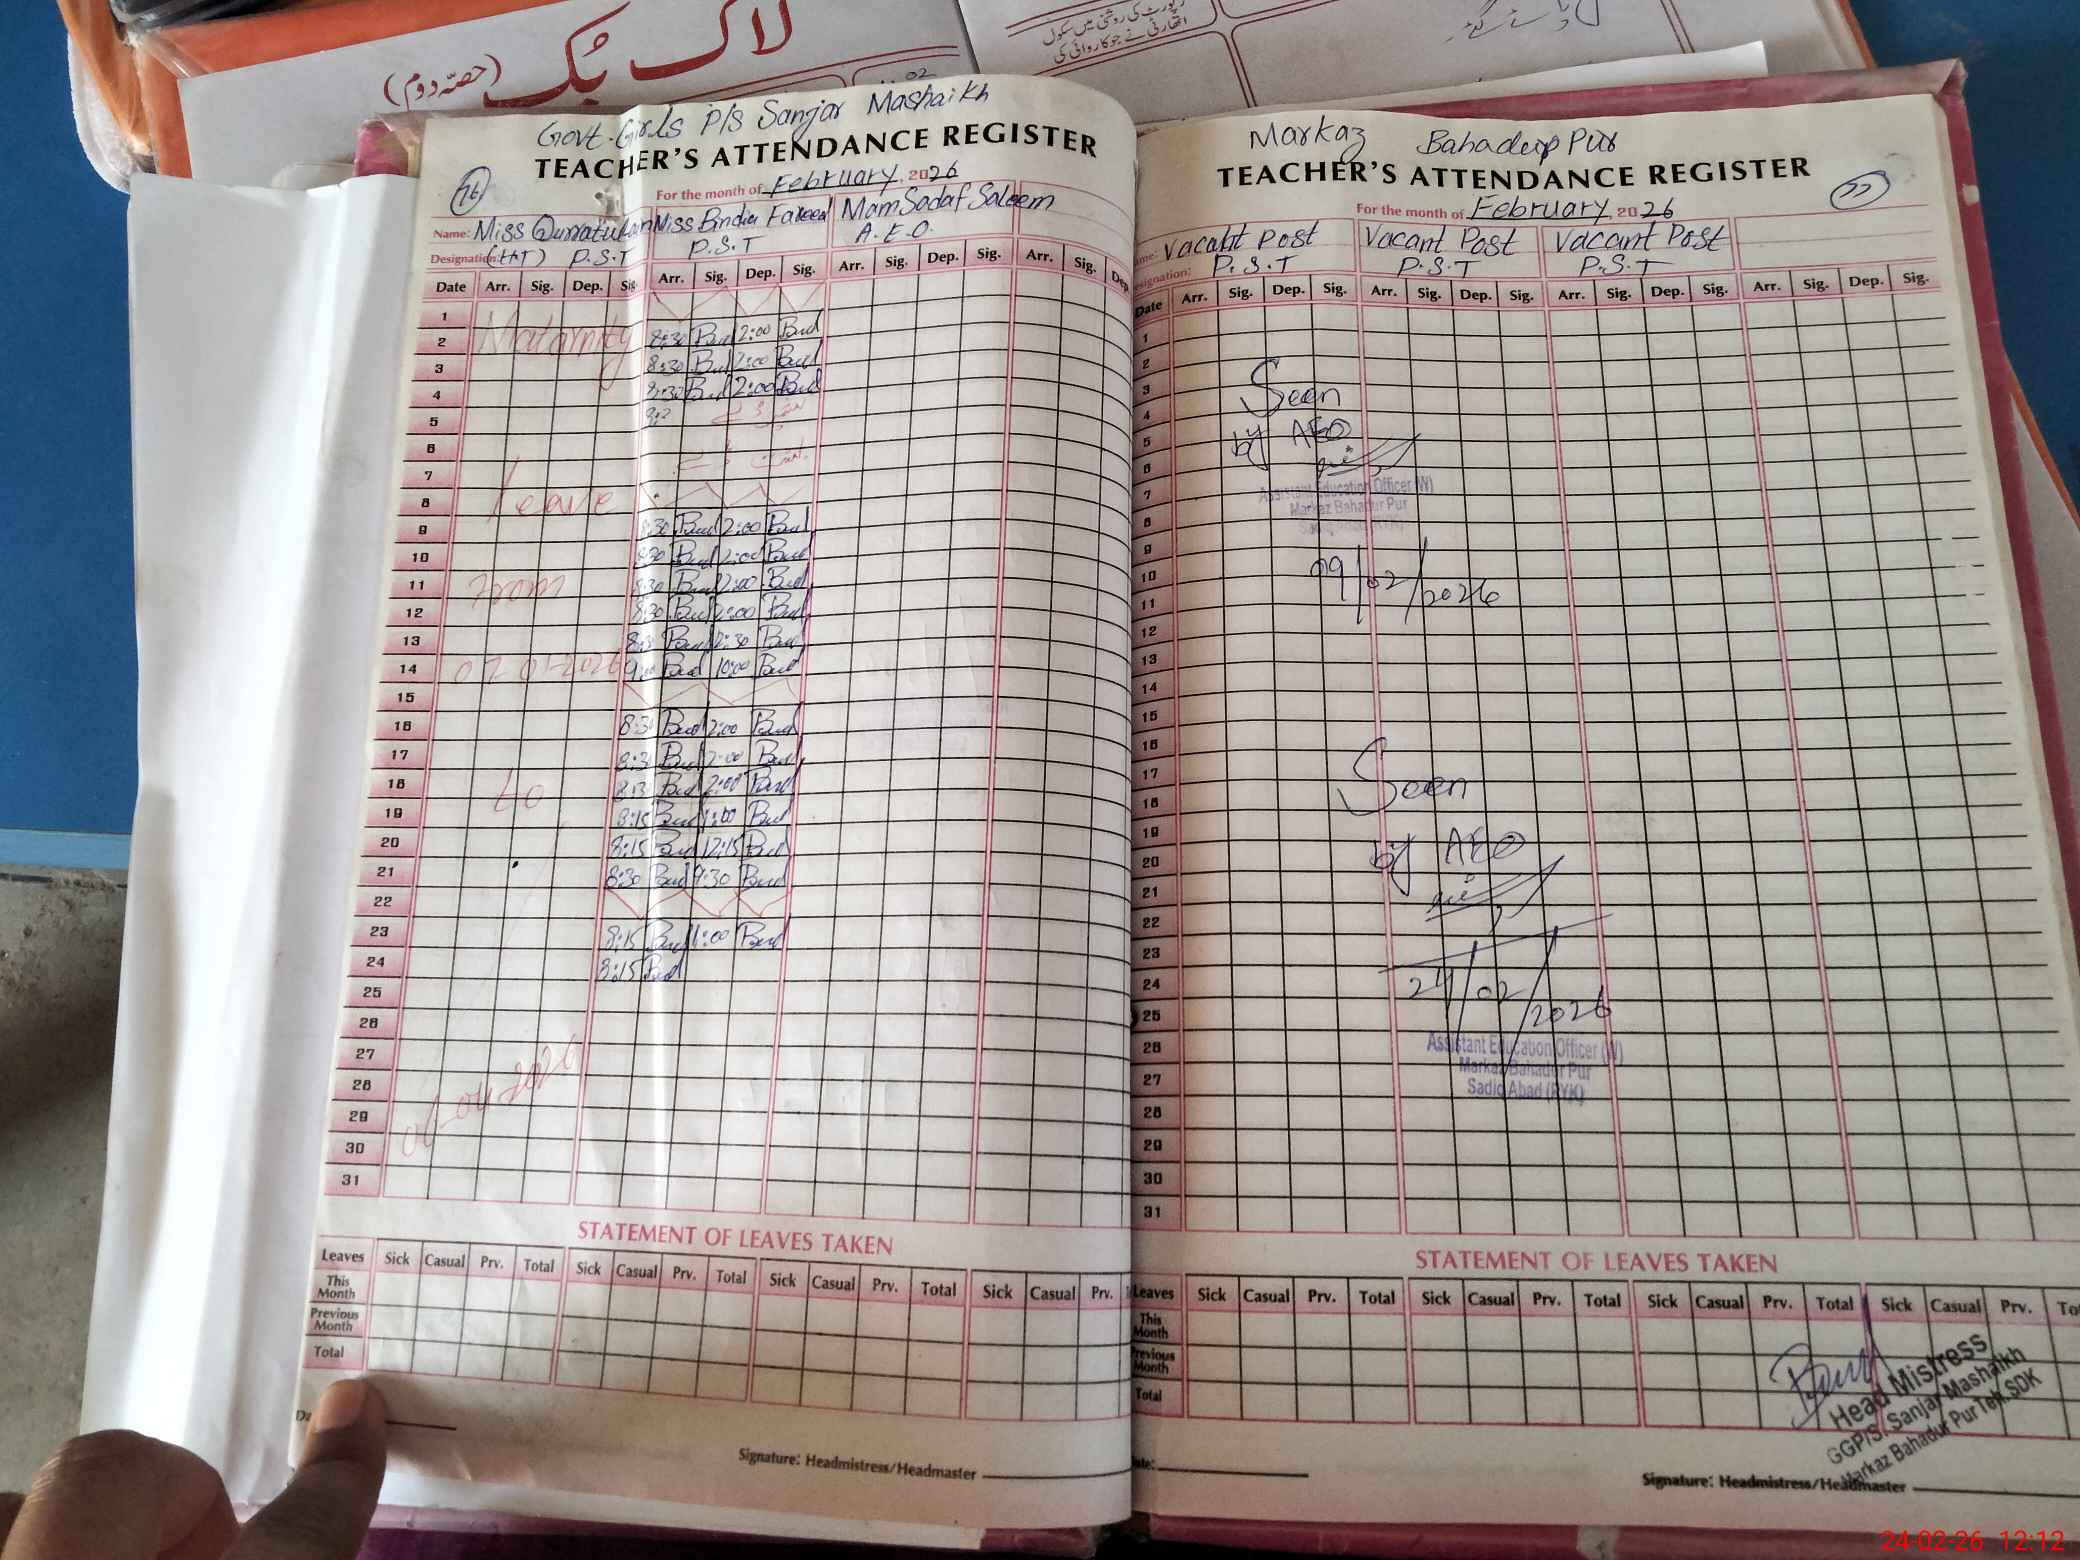 لاگ بک
(حصّہ دوم)
رپورٹ کی روشنی میں سکول
اتھارٹی نے جو کاروائی کی
Govt. Girls P/S Sanjar Mashaikh
TEACHER'S ATTENDANCE REGISTER
76
For the month of February, 2026
Name: Miss Qurratulain Miss Bindia Fareed Mam Sadaf Saleem
Designation: (H.T) P.S.T P.S.T A.E.O.
Date Arr. Sig. Dep. Sig. Arr. Sig. Dep. Sig. Arr. Sig. Dep. Sig. Arr. Sig. Dep.
1
2 Maternity 8:30 Bud 2:00 Bud
3 8:30 Bud 2:00 Bud
4 8:30 Bud 2:00 Bud
5
6
7
8 Leave
9 8:30 Bud 2:00 Bud
10 8:30 Bud 2:00 Bud
11 From 8:30 Bud 2:00 Bud
12 8:30 Bud 2:00 Bud
13 8:30 Bud 2:30 Bud
14 07-01-2026 9:00 Bud 10:00 Bud
15
16 8:30 Bud 2:00 Bud
17 8:30 Bud 2:00 Bud
18 To 8:30 Bud 2:00 Bud
19 8:15 Bud 1:00 Bud
20 8:15 Bud 12:15 Bud
21 8:30 Bud 9:30 Bud
22
23 8:15 Bud 1:00 Bud
24 8:15 Bud
25
26
27
28 06-04-2026
29
30
31
STATEMENT OF LEAVES TAKEN
Leaves Sick Casual Prv. Total Sick Casual Prv. Total Sick Casual Prv. Total Sick Casual Prv.
This Month
Previous Month
Total
Signature: Headmistress/Headmaster
Markaz Bahadur Pur
TEACHER'S ATTENDANCE REGISTER
77
For the month of February, 2026
Vacant Post Vacant Post Vacant Post
P.S.T P.S.T P.S.T
Date Arr. Sig. Dep. Sig. Arr. Sig. Dep. Sig. Arr. Sig. Dep. Sig. Arr. Sig. Dep. Sig.
1
2
3 Seen
4
5 by AEO
6
7 Assistant Education Officer (W)
Markaz Bahadur Pur
8 Sadiq Abad (RYK)
9
10 09/02/2026
11
12
13
14
15
16
17 Seen
18
19
20 by AEO
21
22
23
24 24/02/2026
25
26 Assistant Education Officer (W)
Markaz Bahadur Pur
27 Sadiq Abad (RYK)
28
29
30
31
STATEMENT OF LEAVES TAKEN
Leaves Sick Casual Prv. Total Sick Casual Prv. Total Sick Casual Prv. Total Sick Casual Prv.
This Month
Previous Month
Total
Head Mistress
GGP/S. Sanjar Mashaikh
Markaz Bahadur Pur Teh.SDK
Signature: Headmistress/Headmaster
24-02-26 12:12